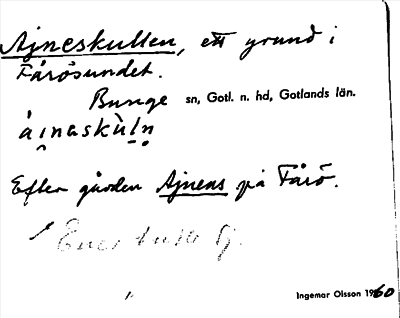 Ajneskullen, ett grund i
Fårösundet.
Bunge sn, Gotl. n. hd, Gotlands län.
Efter gården Ajnens på Fårö.
Ingemar Olsson 1960